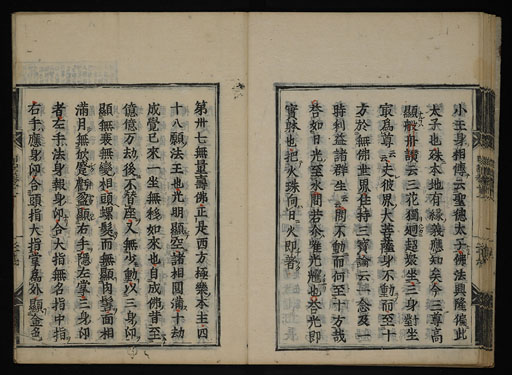 小王身相傳云聖德太子佛法興隆偏此
太子也殊本地有緣義應知矣今三尊高
顯般舟讚云三花獨迥超衆坐三身對坐
最爲尊云史彼界大菩薩身不動而至十
方於無佛世界住持三寶論云一念及一
時利益諸群生云問不動而何至十方哉
答如日光至水間若令進光躰也答光即
實躰也把火珠向日火即著
第卅七無量壽佛正是西方極樂本主四
十八願法王也光明顯空諸相圓滿十劫
成覺已來一坐無移如來也自成佛昔至
億億万劫後不替座又無少動以三身仰
滿月無妨覺虧盈顯右手隱左掌三身仰
顯無衰無變相頭螺髮而無顯肉髻面相
者左手法身報身卯合大指無名指中指
右手應身卯合頭指大指掌爲外顯金色